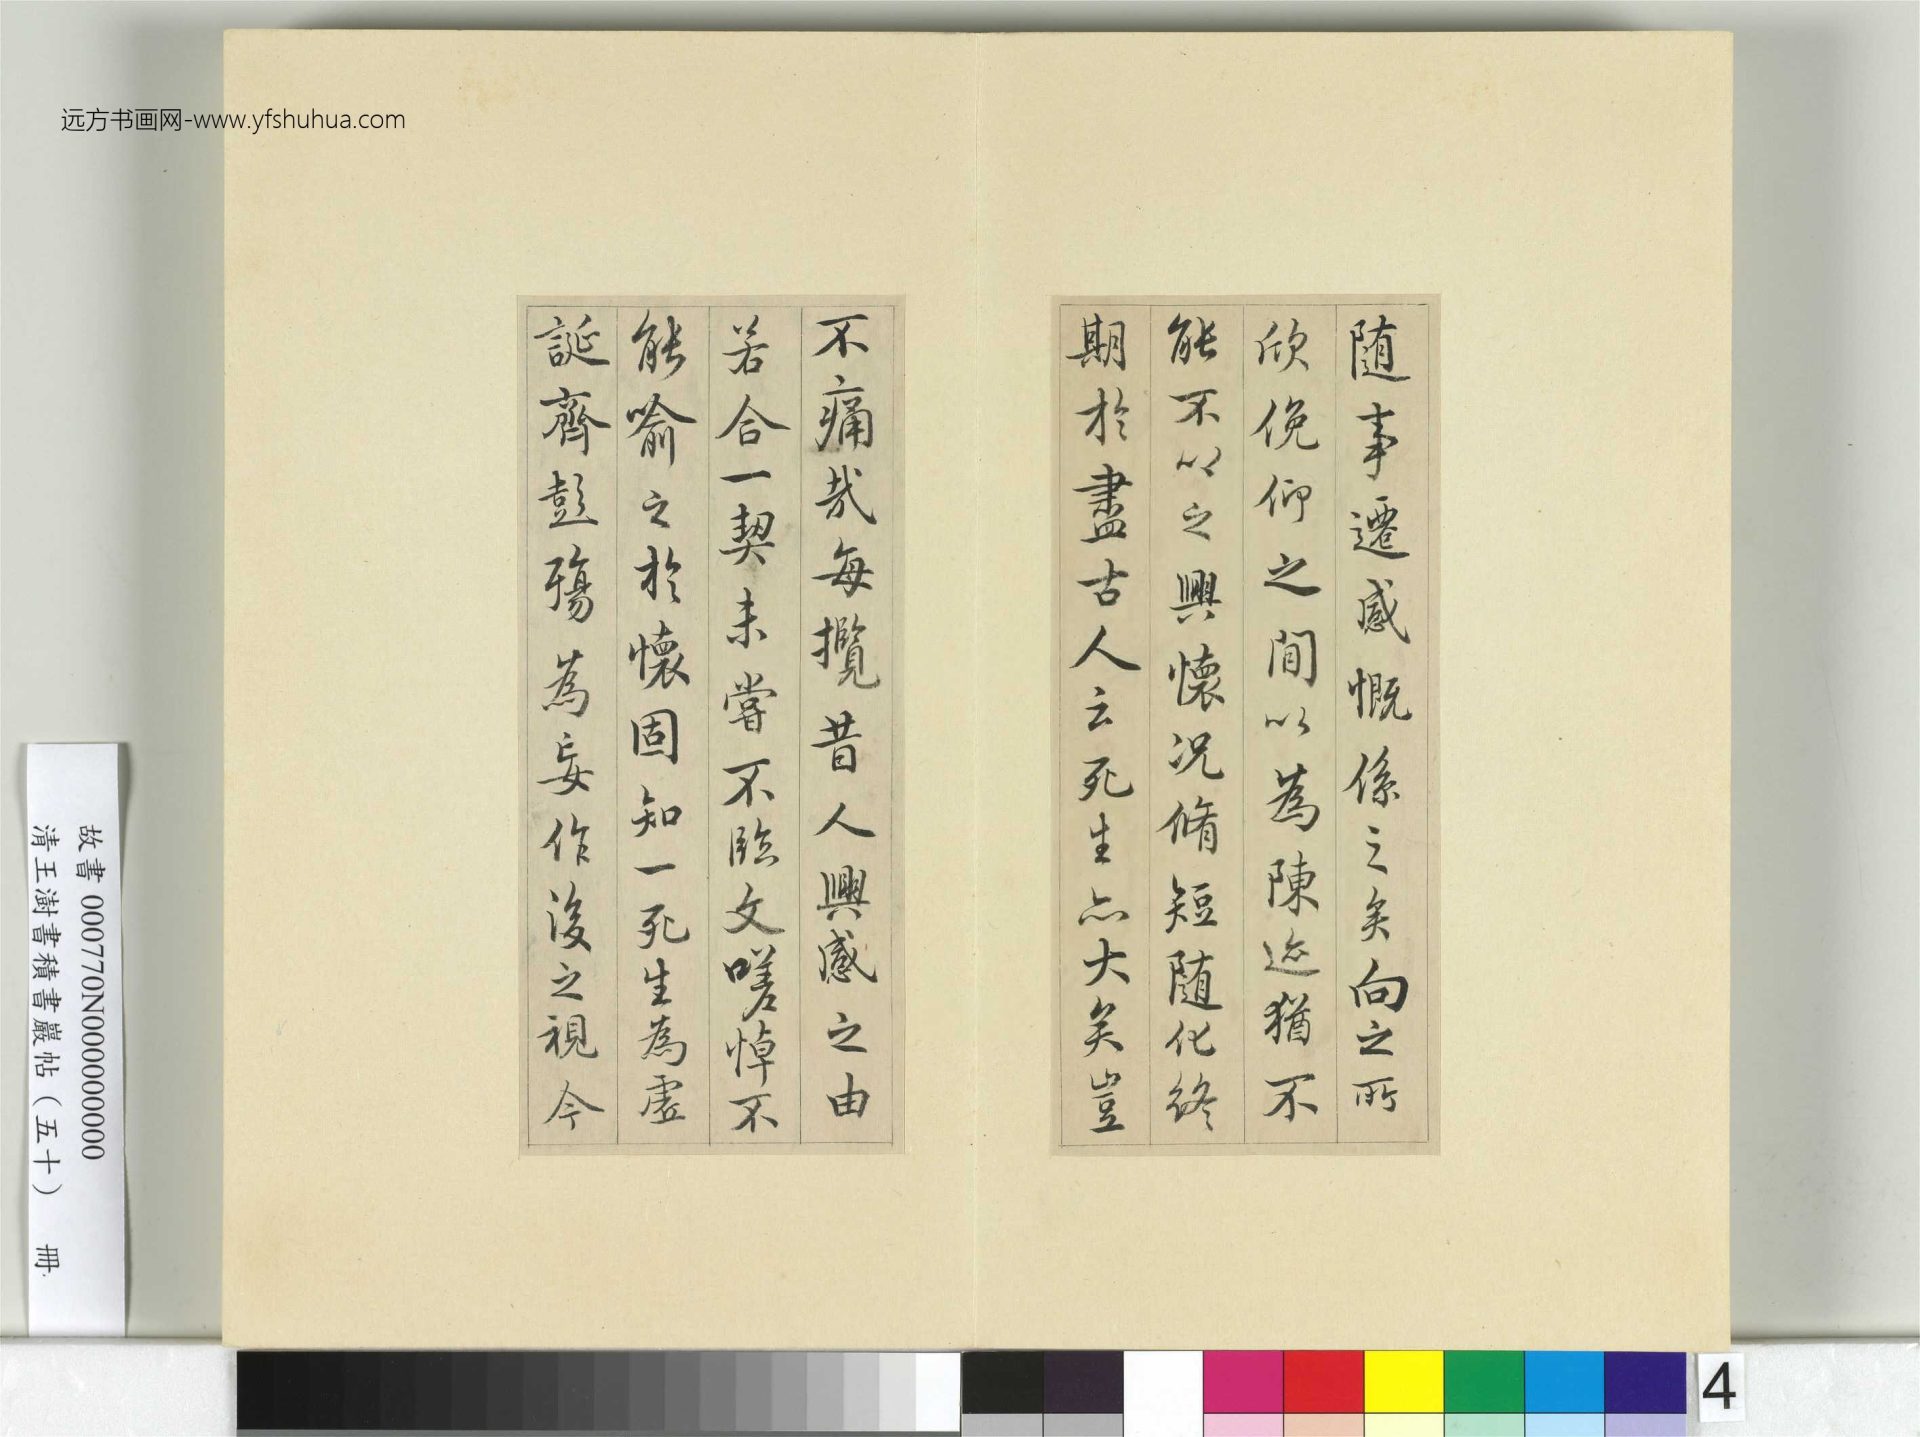 远方书画网-www.yfshuhua.com
随事遷感慨係之矣向之所
欣俛仰之間以為陳迹猶不
能不以之興懷况脩短随化終
期於盡古人云死生亦大矣豈
不痛哉每攬昔人興感之由
若合一契未嘗不臨文嗟悼不
能喻之於懷固知一死生為虛
誕齊彭殤為妄作後之視今
故書 000770N000000000
清王澍書積書巖帖(五十) 冊
4